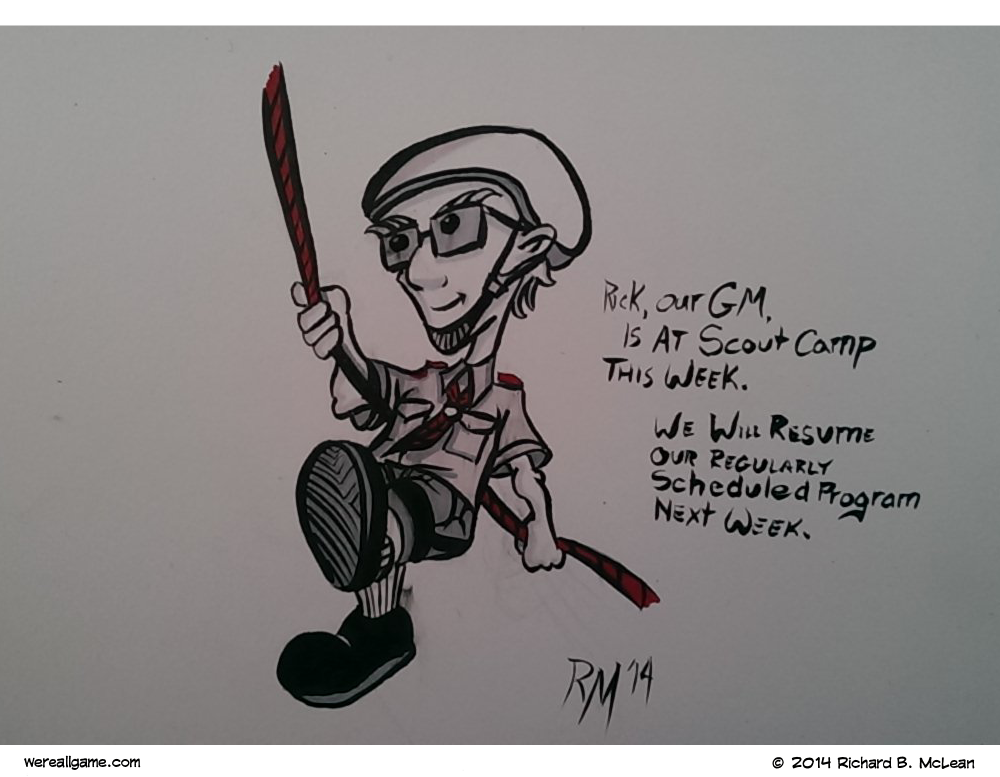 Rick, our GM,
is at Scout Camp
This Week.
We Will Resume
our Regularly
Scheduled Program
Next Week.
RM '14
wereallgame.com
© 2014 Richard B. McLean